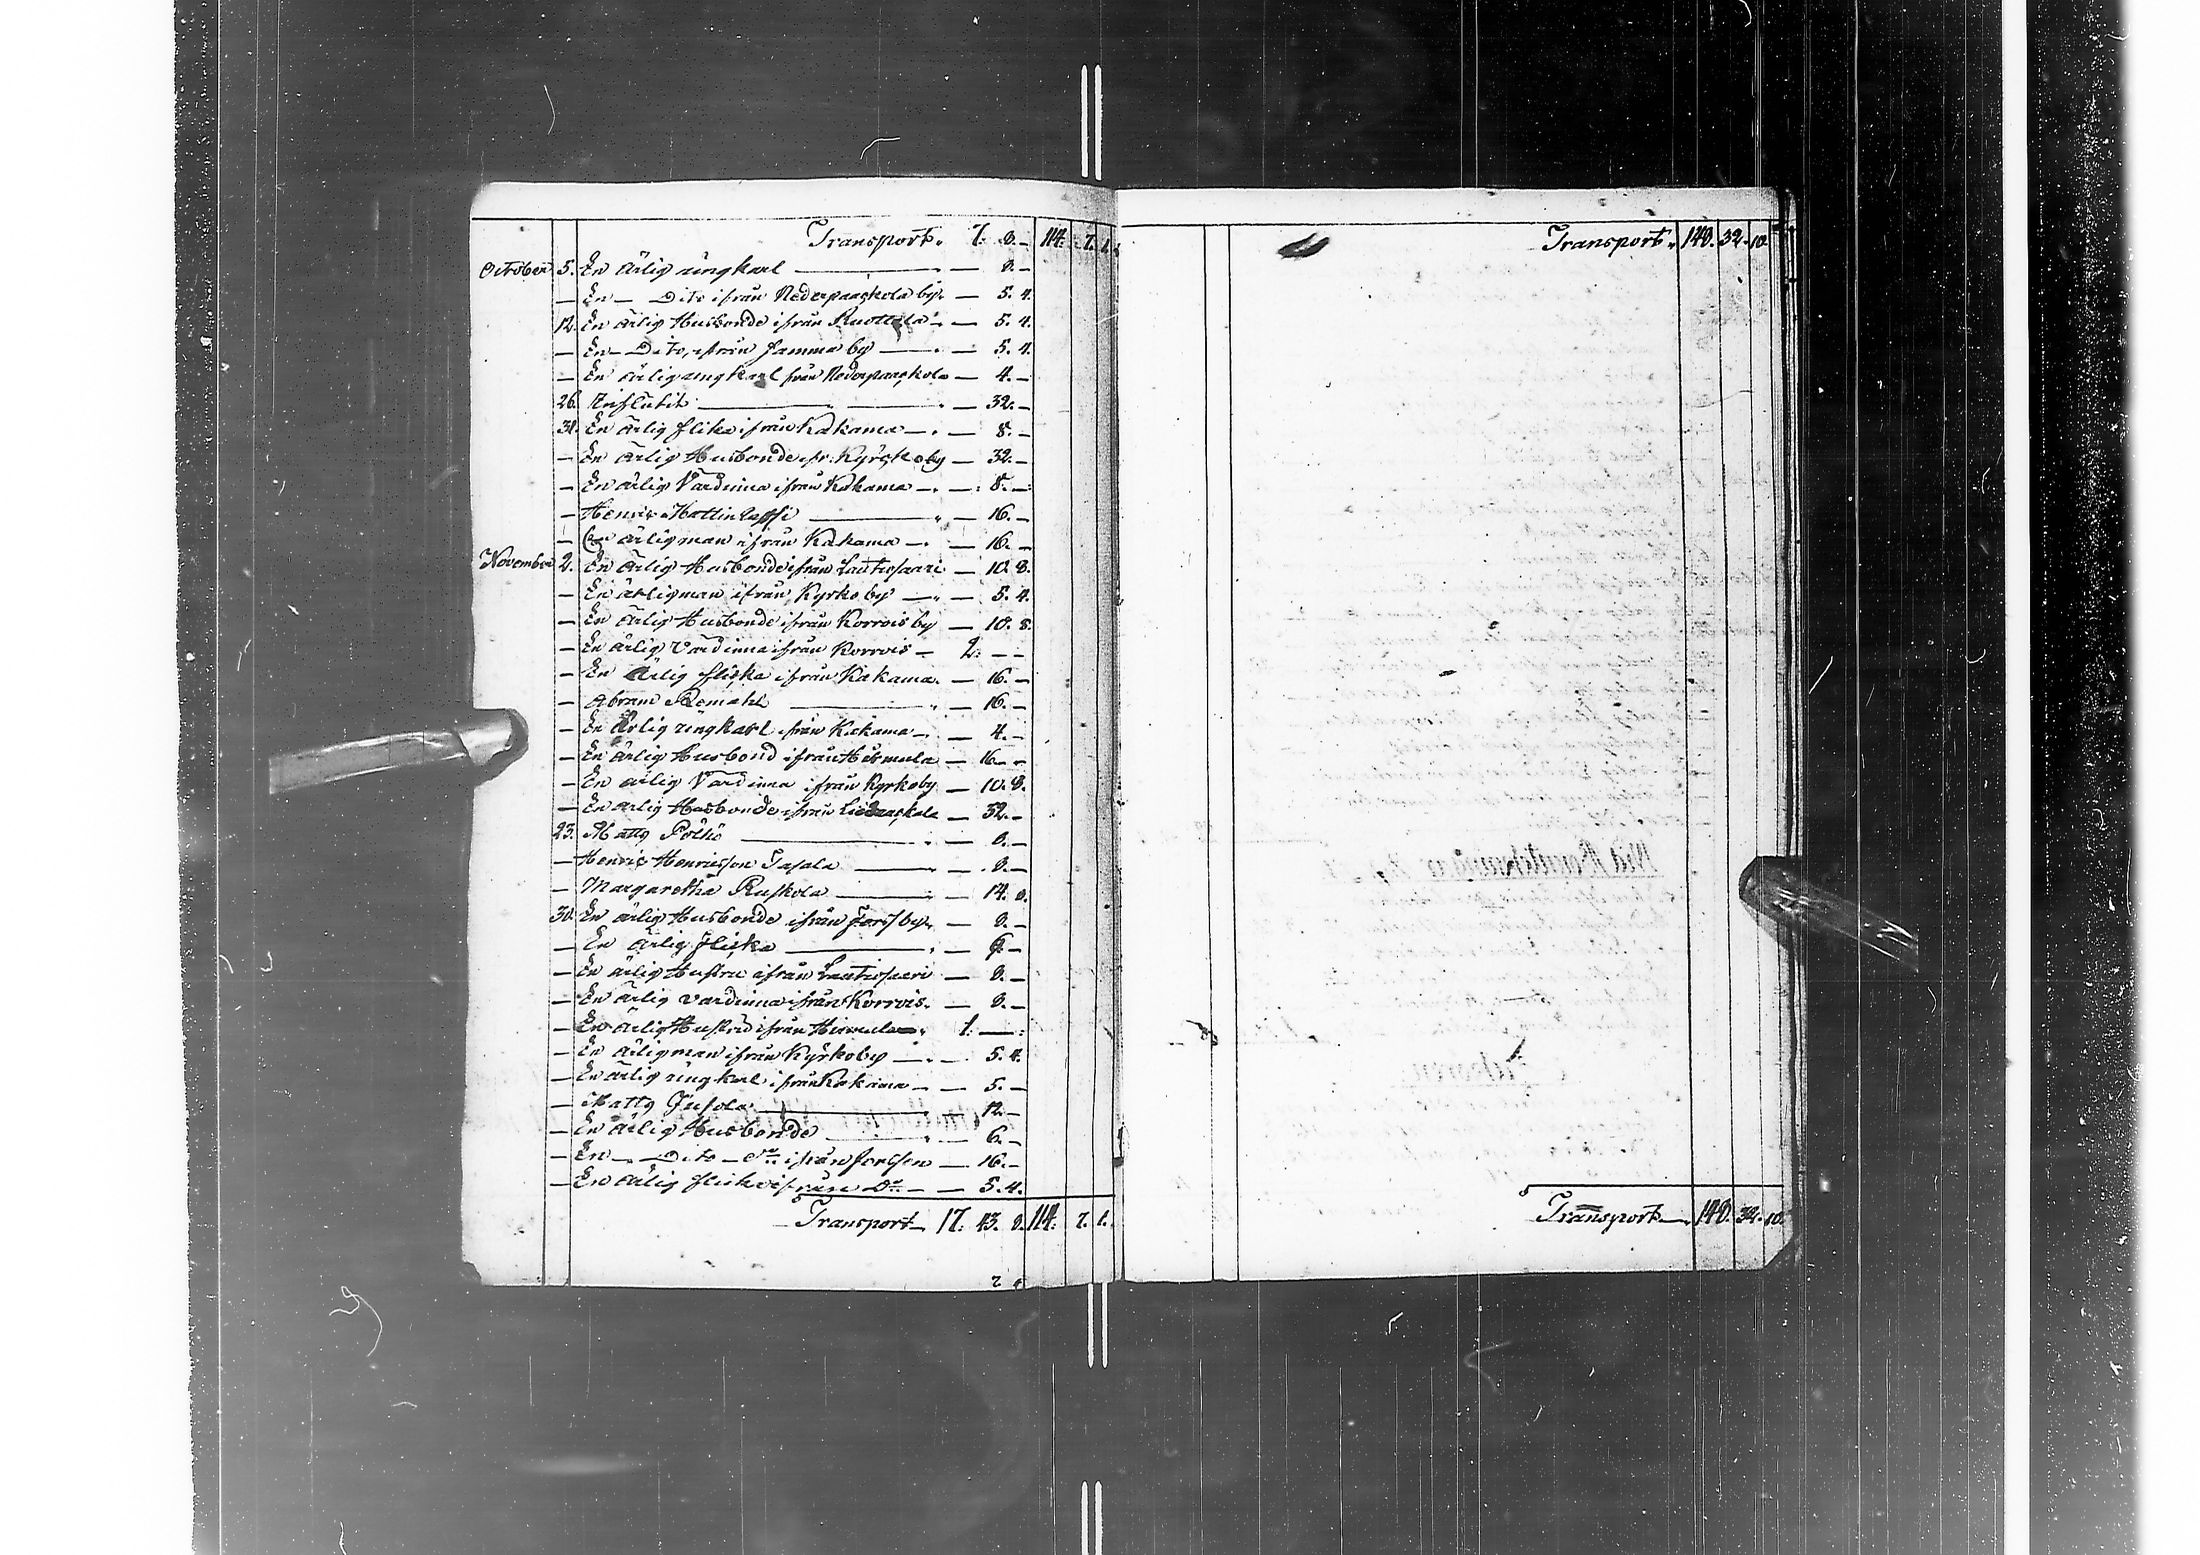 Transport 7. 8. — 114. 7. 1.
October 5. En ärlig ungkarl — 8. —
— En — Dito ifrån Nederpaaskola by — 5. 4.
12. En ärlig Husbonde ifrån Ruottala — 5. 4.
— En — Dito, ifrån samma by — 5. 4.
— En ärlig ungkarl från Nederpaaskola — 4. —
26. Influtit — 32. —
31. En ärlig flika ifrån Kakama — 8. —
— En ärlig Husbonde ifr. Kyrckoby — 32. —
— En ärlig Värdinna ifrån Kakama — 8. —
— Henric Mattin — 16. —
— En ärlig man ifrån Kakama — 16. —
November 2. En ärlig Husbonde ifrån Lautiosaari — 10. 8.
— En ärlig man ifrån Kyrkoby — 5. 4.
— En ärlig Husbonde ifrån Korrois by — 10. 8.
— En ärlig Värdinna ifrån Korrois — 2. — —
— En ärlig fliska ifrån Kakama — 16. —
— Abram — 16. —
— En ärlig ungkarl ifrån Kakama — 4. —
— En ärlig Husbond ifrån Hirmula — 16. —
— En ärlig Värdinna ifrån Kyrkoby — 10. 8.
— En ärlig Husbonde ifrån — 32. —
23. Matts — 8. —
— Henric Henricsson — 8. —
— Margaretha Ruskola — 14. 8.
30. En ärlig Husbonde ifrån Forsby — 8. —
— En ärlig fliska — 6. —
— En ärlig Hustru ifrån Lautiosaari — 8. —
— En ärlig värdinna ifrån Korrois — 8. —
— En ärlig ifrån Hirmula — 1. —
— En ärlig man ifrån Kyrkoby — 5. 4.
— En ärlig ungkarl ifrån Kakama — 5. —
— Matts Jusola — 12. —
— En ärlig Husbonde — 6. —
— En — Dito — ifrån — 16. —
— En ärlig flicka ifrån Do — 5. 4.
Transport 17. 43. 8. 114. 7. 1.
Transport 140. 32. 10.
Transport 140. 32. 10.